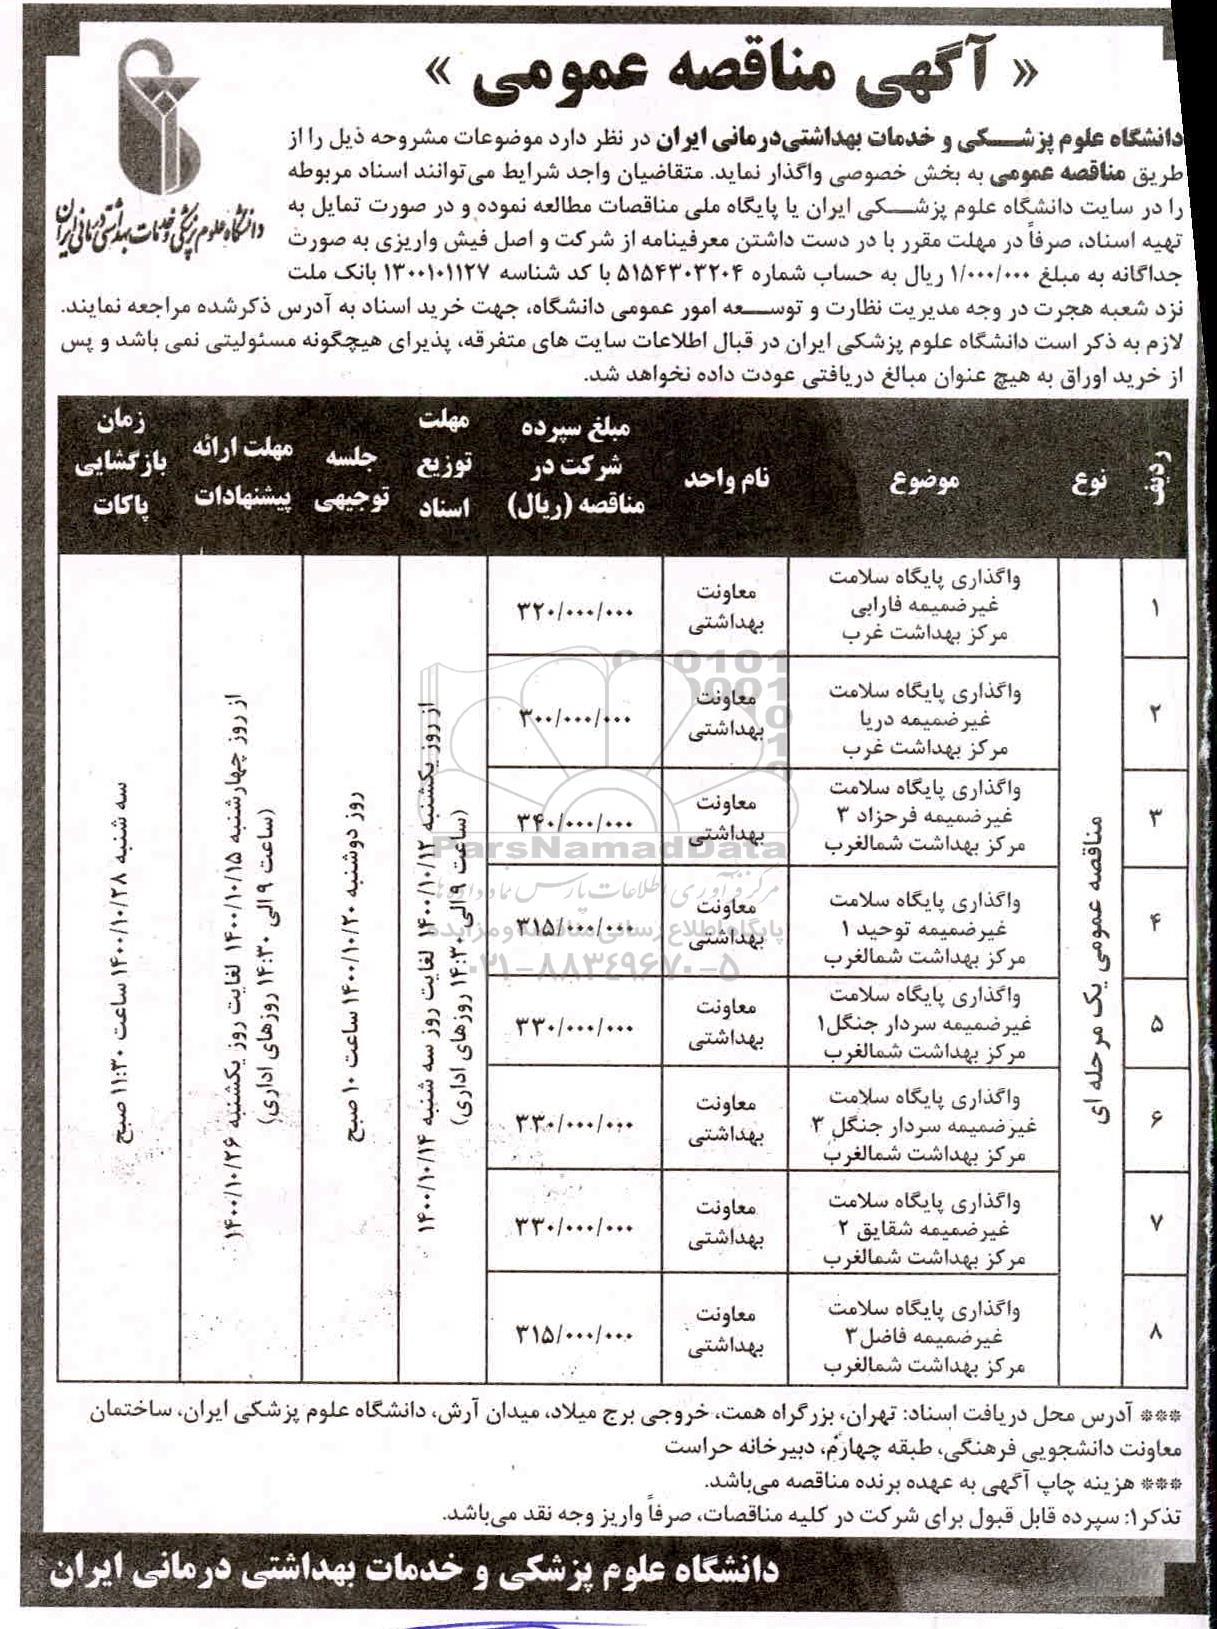 « آگهی مناقصه عمومی »
دانشگاه علوم پزشکی و خدمات بهداشتی درمانی ایران
دانشگاه علوم پزشکی و خدمات بهداشتی‌درمانی ایران در نظر دارد موضوعات مشروحه ذیل را از
طریق مناقصه عمومی به بخش خصوصی واگذار نماید. متقاضیان واجد شرایط می‌توانند اسناد مربوطه
را در سایت دانشگاه علوم پزشکی ایران یا پایگاه ملی مناقصات مطالعه نموده و در صورت تمایل به
تهیه اسناد، صرفاً در مهلت مقرر با در دست داشتن معرفینامه از شرکت و اصل فیش واریزی به صورت
جداگانه به مبلغ ۱/۰۰۰/۰۰۰ ریال به حساب شماره ۵۱۵۴۳۰۳۲۰۴ با کد شناسه ۱۳۰۰۱۰۱۱۲۷ بانک ملت
نزد شعبه هجرت در وجه مدیریت نظارت و توسعه امور عمومی دانشگاه، جهت خرید اسناد به آدرس ذکرشده مراجعه نمایند.
لازم به ذکر است دانشگاه علوم پزشکی ایران در قبال اطلاعات سایت های متفرقه، پذیرای هیچگونه مسئولیتی نمی باشد و پس
از خرید اوراق به هیچ عنوان مبالغ دریافتی عودت داده نخواهد شد.
ردیف
نوع
موضوع
نام واحد
مبلغ سپرده
شرکت در
مناقصه (ریال)
مهلت
توزیع
اسناد
جلسه
توجیهی
مهلت ارائه
پیشنهادات
زمان
بازگشایی
پاکات
مناقصه عمومی یک مرحله ای
۱
واگذاری پایگاه سلامت
غیرضمیمه فارابی
مرکز بهداشت غرب
معاونت
بهداشتی
۳۲۰/۰۰۰/۰۰۰
۲
واگذاری پایگاه سلامت
غیرضمیمه دریا
مرکز بهداشت غرب
معاونت
بهداشتی
۳۰۰/۰۰۰/۰۰۰
۳
واگذاری پایگاه سلامت
غیرضمیمه فرحزاد ۳
مرکز بهداشت شمالغرب
معاونت
بهداشتی
۳۴۰/۰۰۰/۰۰۰
۴
واگذاری پایگاه سلامت
غیرضمیمه توحید ۱
مرکز بهداشت شمالغرب
معاونت
بهداشتی
۳۱۵/۰۰۰/۰۰۰
۵
واگذاری پایگاه سلامت
غیرضمیمه سردار جنگل۱
مرکز بهداشت شمالغرب
معاونت
بهداشتی
۳۳۰/۰۰۰/۰۰۰
۶
واگذاری پایگاه سلامت
غیرضمیمه سردار جنگل ۳
مرکز بهداشت شمالغرب
معاونت
بهداشتی
۳۳۰/۰۰۰/۰۰۰
۷
واگذاری پایگاه سلامت
غیرضمیمه شقایق ۲
مرکز بهداشت شمالغرب
معاونت
بهداشتی
۳۳۰/۰۰۰/۰۰۰
۸
واگذاری پایگاه سلامت
غیرضمیمه فاضل۳
مرکز بهداشت شمالغرب
معاونت
بهداشتی
۳۱۵/۰۰۰/۰۰۰
از روز یکشنبه ۱۴۰۰/۱۰/۱۲ لغایت روز سه شنبه ۱۴۰۰/۱۰/۱۴
(ساعت ۹ الی ۱۴:۳۰ روزهای اداری)
روز دوشنبه ۱۴۰۰/۱۰/۲۰ ساعت ۱۰ صبح
از روز چهارشنبه ۱۴۰۰/۱۰/۱۵ لغایت روز یکشنبه ۱۴۰۰/۱۰/۲۶
(ساعت ۹ الی ۱۴:۳۰ روزهای اداری)
سه شنبه ۱۴۰۰/۱۰/۲۸ ساعت ۱۱:۳۰ صبح
ParsNamadData
مرکز فرآوری اطلاعات پارس نماد داده ها
پایگاه اطلاع رسانی مناقصه و مزایده
۰۲۱-۸۸۳۴۹۶۷۰-۵
*** آدرس محل دریافت اسناد: تهران، بزرگراه همت، خروجی برج میلاد، میدان آرش، دانشگاه علوم پزشکی ایران، ساختمان
معاونت دانشجویی فرهنگی، طبقه چهارم، دبیرخانه حراست
*** هزینه چاپ آگهی به عهده برنده مناقصه می‌باشد.
تذکر۱: سپرده قابل قبول برای شرکت در کلیه مناقصات، صرفاً واریز وجه نقد می‌باشد.
دانشگاه علوم پزشکی و خدمات بهداشتی درمانی ایران